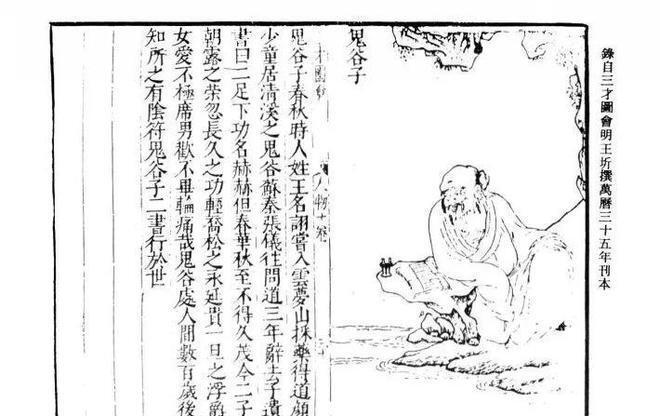 錄自三才圖會明王圻撰萬曆三十五年刊本
鬼谷子
才圖會 人物十卷
鬼谷子春秋時人姓王名詡嘗入雲夢山採藥得道顏
少童居清溪之鬼谷蘇秦張儀往問道三年辭去子遺
書曰二足下功名赫赫但春華秋至不得久茂今二子
朝露之榮忽長久之功輕喬松之永延貴一旦之浮爵
女愛不極席男歡不畢輪痛哉鬼谷處人間數百歲後
知所之有陰符鬼谷子二書行於世